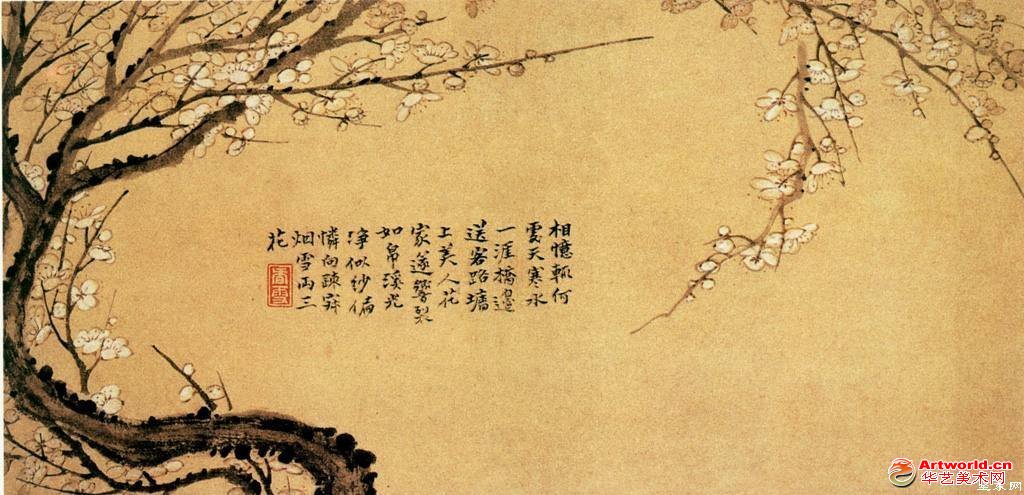 相憶輒何
處天寒水
一涯橋邊
送客路墻
上美人花
家篴響裂
如帛溪光
淨似紗偏
憐向疎
烟雪兩三
花
Artworld.cn
华艺美术网